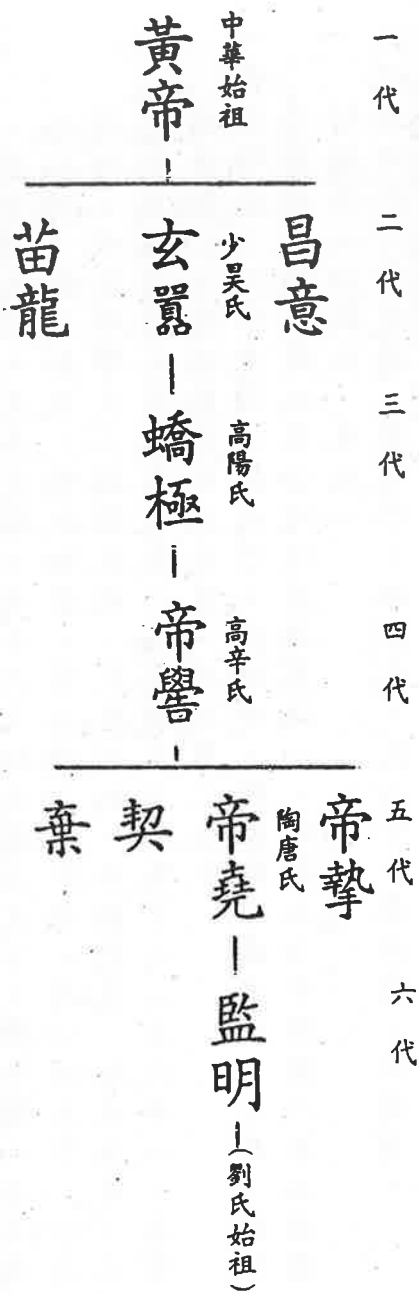 一代
中華始祖
黃帝
二代
昌意
少昊氏
玄囂
苗龍
三代
高陽氏
蟜極
四代
高辛氏
帝嚳
五代
帝摯
陶唐氏
帝堯
契
棄
六代
監明
(劉氏始祖)